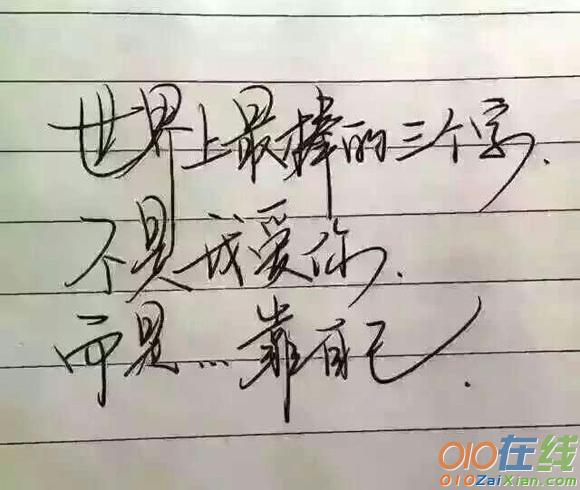 世界上最棒的三个字、
不是我爱你、
而是…靠自己.
010在线
010ZaiXian.com